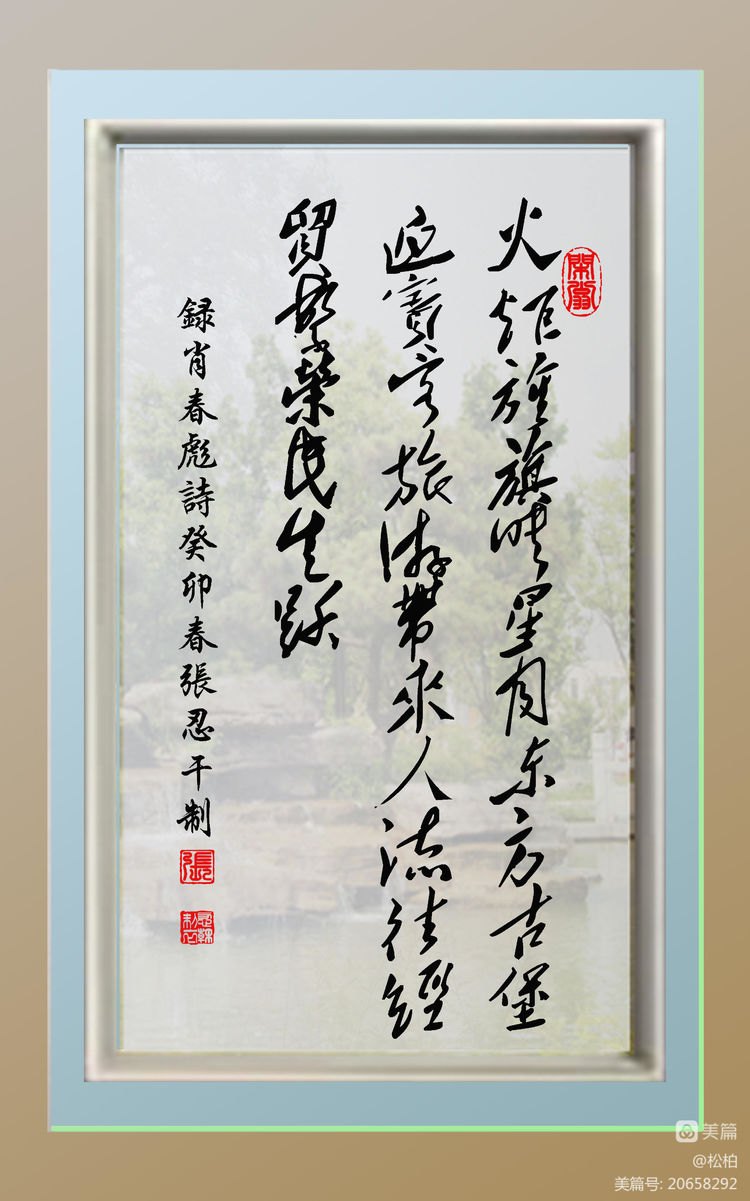 火炬旌旗映星月东方古堡
迎賓客旅游帶來人流往經
貿繁榮民生跃
録肖春彪詩癸卯春張忍干制
張
美篇
@松柏
美篇号: 20658292